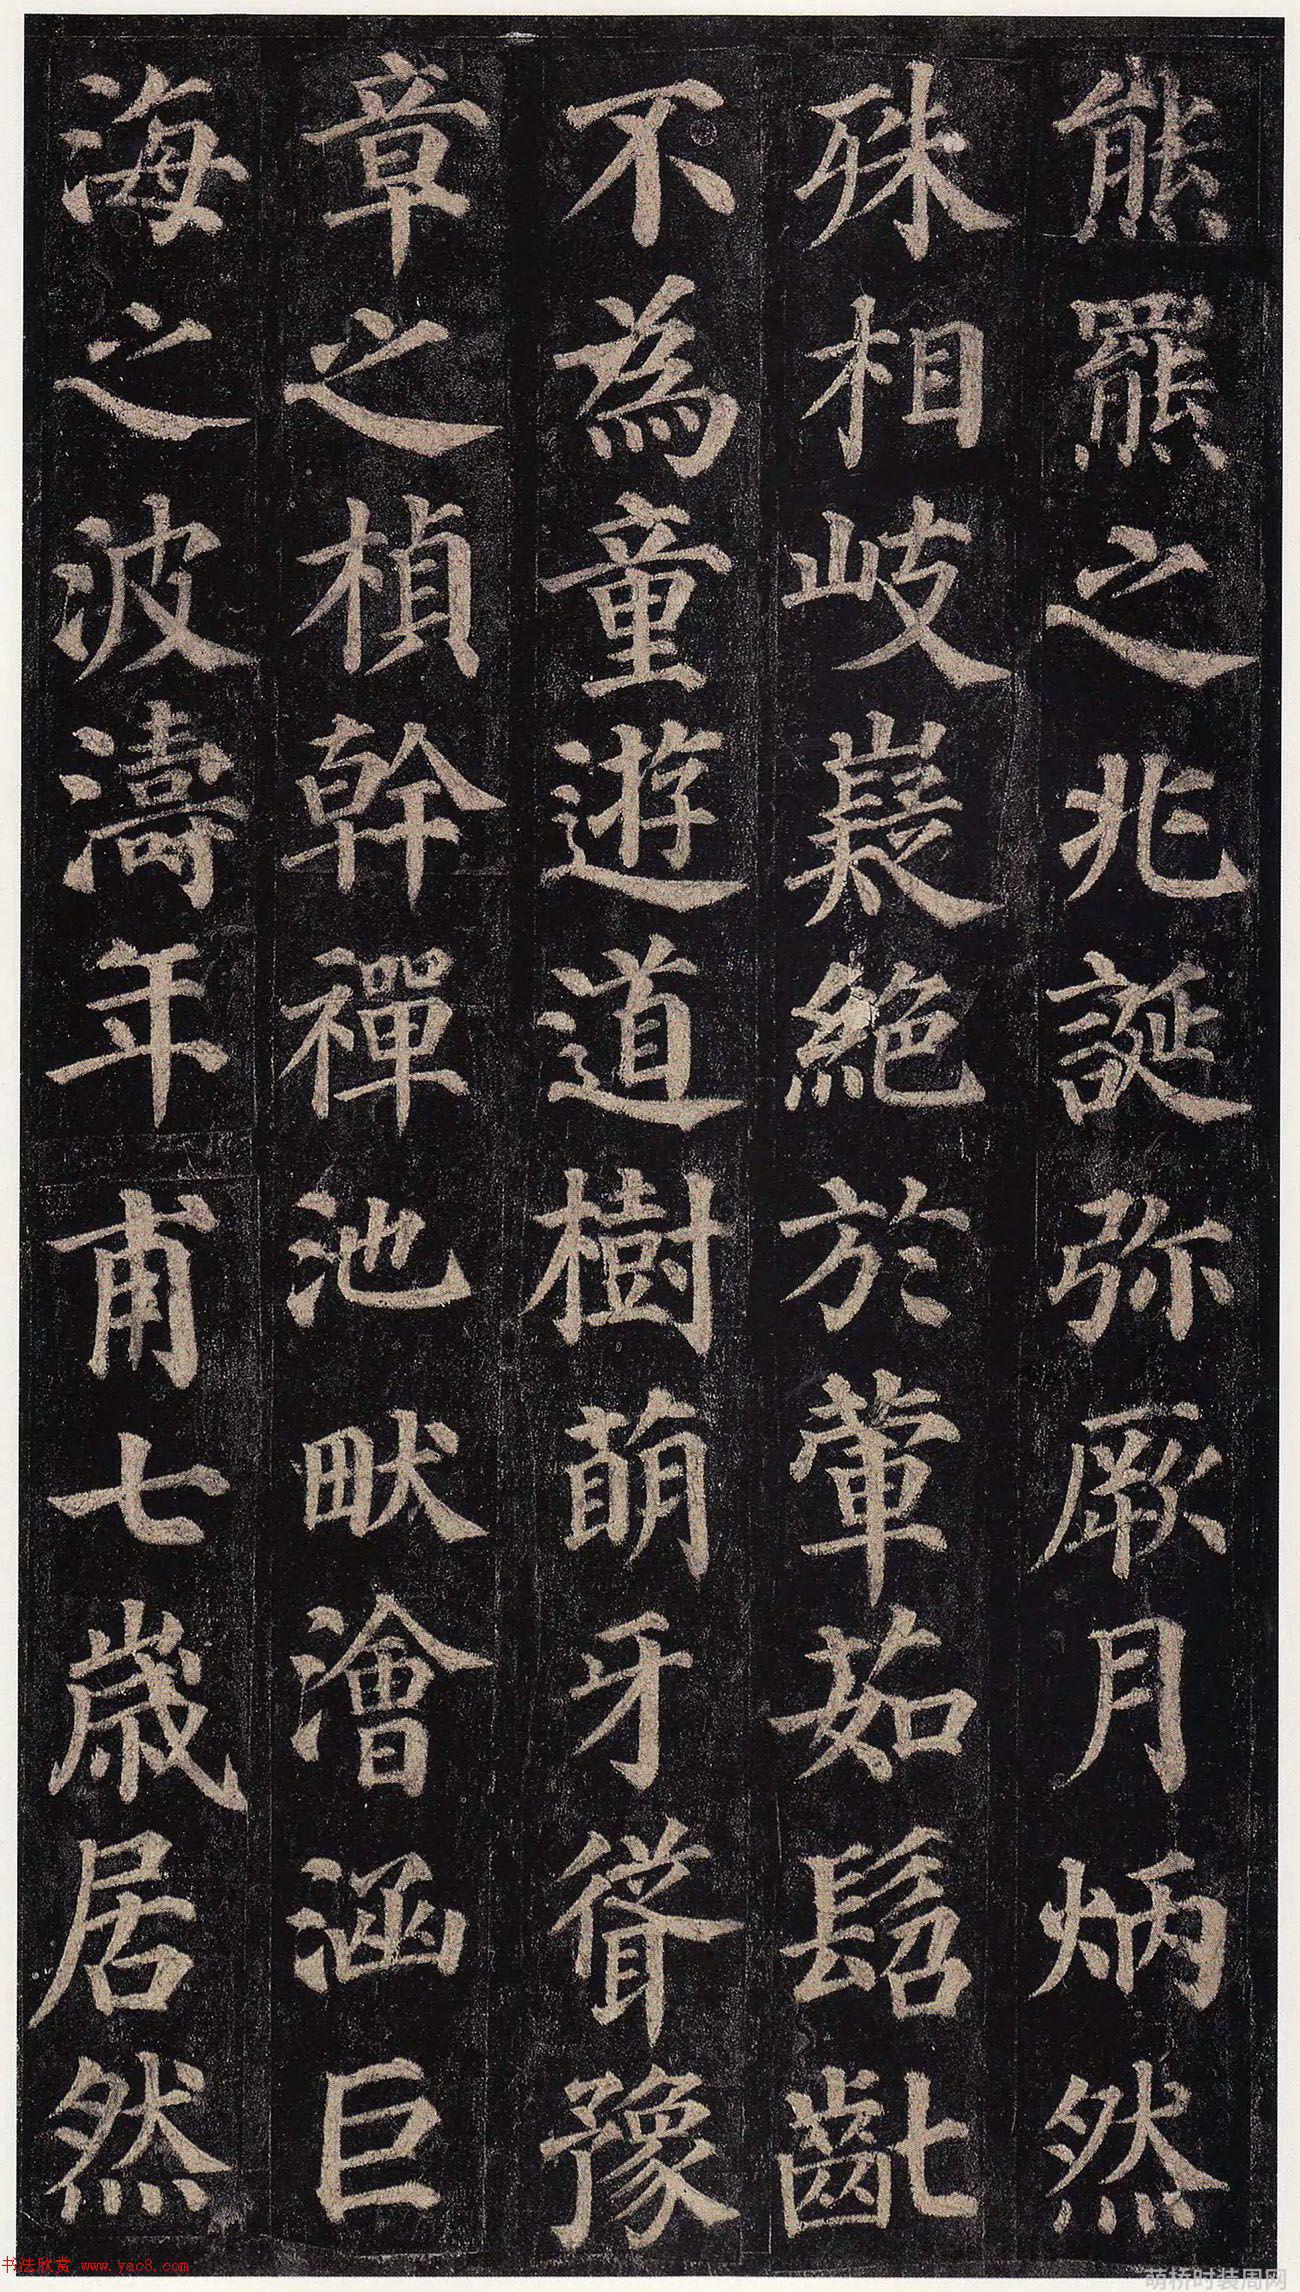 熊羆之兆誕弥厥月炳然
殊相岐嶷絕於葷茹髫齓
不為童遊道樹萌牙聳豫
章之楨幹禪池畎澮涵巨
海之波濤年甫七歲居然
书法欣赏 www.yac8.com
萌桥时装周网